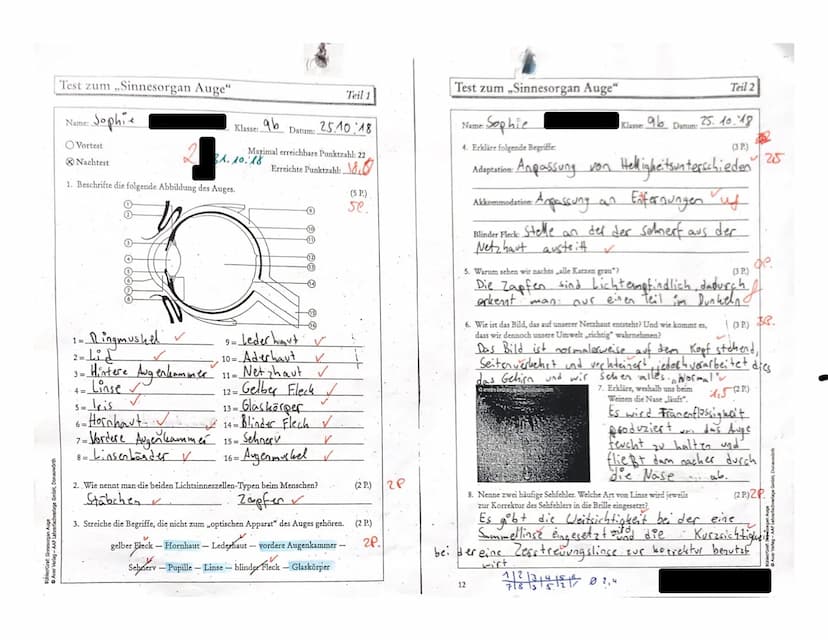 Test zum „Sinnesorgan Auge“
Teil 1
Name: Sophie Klasse: 9b Datum: 25.10.'18
Vortest
Nachtest
2
31.10.'18
Maximal erreichbare Punktzahl: 22
Erreichte Punktzahl:
1. Beschrifte die folgende Abbildung des Auges. (5 P.)
5P.
1
2
3
4
5
6
7
8
9
10
11
12
13
14
15
16
1 = Ringmuskel
2 = Lid
3 = Hintere Augenkammer
4 = Linse
5 = Iris
6 = Hornhaut
7 = Vordere Augenkammer
8 = Linsenbänder
9 = Lederhaut
10 = Aderhaut
11 = Netzhaut
12 = Gelber Fleck
13 = Glaskörper
14 = Blinder Fleck
15 = Sehnerv
16 = Augenmuskel
2. Wie nennt man die beiden Lichtsinneszellen-Typen beim Menschen? (2 P.)
2P
Stäbchen Zapfen
3. Streiche die Begriffe, die nicht zum „optischen Apparat“ des Auges gehören. (2 P.)
gelber Fleck – Hornhaut – Lederhaut – vordere Augenkammer –
2P.
Sehnerv – Pupille – Linse – blinder Fleck – Glaskörper
© Auer Verlag – AAP Lehrerfachverlage GmbH, Donauwörth
Test zum „Sinnesorgan Auge“
Teil 2
Name: Sophie Klasse: 9b Datum: 25.10.'18
4. Erkläre folgende Begriffe: (3 P.)
2,5
Adaptation: Anpassung von Helligkeitsunterschieden
Akkommodation: Anpassung an Entfernungen
Blinder Fleck: Stelle an der der Sehnerf aus der
Netzhaut austritt
5. Warum sehen wir nachts „alle Katzen grau“? (3 P.)
0P.
Die Zapfen sind Lichtempfindlich, dadurch
erkennt man nur einen Teil im Dunkeln
6. Wie ist das Bild, das auf unserer Netzhaut entsteht? Und wie kommt es, (3 P.)
3P.
dass wir dennoch unsere Umwelt „richtig“ wahrnehmen?
Das Bild ist normalerweise auf dem Kopf stehend,
Seitenverkehrt und verkleinert, jedoch verarbeitet dies
das Gehirn und wir sehen alles „Normal“
7. Erkläre, weshalb uns beim (2 P.)
1,5
Weinen die Nase „läuft“.
Es wird Tränenflüssigkeit
produziert um das Auge
feucht zu halten und
fließt dann nacher durch
die Nase ab.
8. Nenne zwei häufige Sehfehler. Welche Art von Linse wird jeweils (2 P.)
2P.
zur Korrektur des Sehfehlers in die Brille eingesetzt?
Es gibt die Weitsichtigkeit bei der eine
Sammellinse eingesetzt wird und die Kurzsichtigkeit
bei der eine Zerstreuungslinse zur Korrektur benutzt
wirt
12
1 2 3 4 5 6
Ø 2,4
© Auer Verlag – AAP Lehrerfachverlage GmbH, Donauwörth